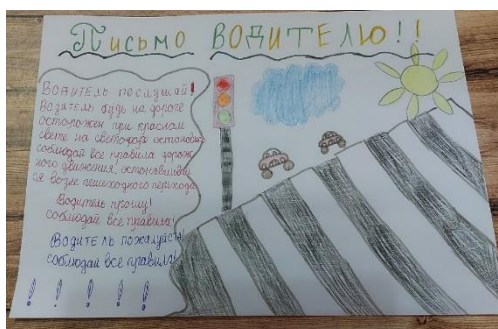 Письмо водителю!!
Водитель послушай!
Водитель будь на дороге
осторожен при красном
свете на светофоре остановись
соблюдай все правила дорож
ного движения, останавливай
ся возле пешеходного перехода
Водитель прошу!
соблюдай все правила!
Водитель пожалуйста!
соблюдай все правила!
! ! ! ! !